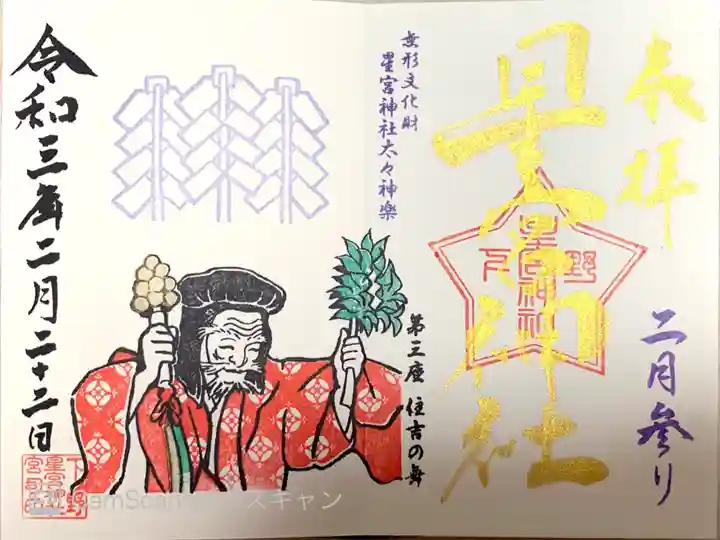 奉拝
星宮神社
下野
星宮神社
二月参り
無形文化財
星宮神社太々神楽
第三座 住吉の舞
令和三年二月二十二日